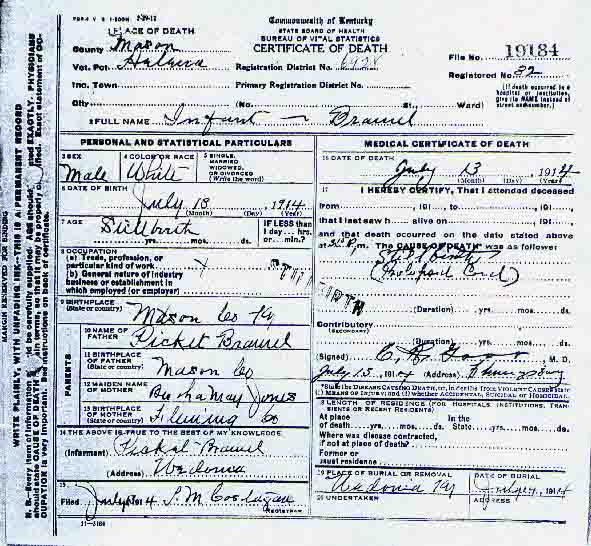 FORM V S 1-500M 7-29-12
PLACE OF DEATH
County Mason
Vot. Pct.
Inc. Town
City
Commonwealth of Kentucky
STATE BOARD OF HEALTH
BUREAU OF VITAL STATISTICS
CERTIFICATE OF DEATH
Registration District No.
Primary Registration District No.
(No. St., Ward)
File No. 19184
Registered No. 32
(If death occurred in a hospital or institution, give its NAME instead of street and number.)
2 FULL NAME Infant Bramel
PERSONAL AND STATISTICAL PARTICULARS
3 SEX Male
4 COLOR OR RACE White
5 SINGLE, MARRIED, WIDOWED, OR DIVORCED (Write the word)
6 DATE OF BIRTH July 13, 1914
(Month) (Day) (Year)
7 AGE Stillbirth
yrs. mos. ds.
IF LESS than 1 day, hrs. or min.?
8 OCCUPATION
(a) Trade, profession, or particular kind of work
(b) General nature of industry business or establishment in which employed (or employer)
9 BIRTHPLACE (State or country) Mason Co Ky
PARENTS
10 NAME OF FATHER Picket Bramel
11 BIRTHPLACE OF FATHER (State or country) Mason Co
12 MAIDEN NAME OF MOTHER May Jones
13 BIRTHPLACE OF MOTHER (State or country) Fleming Co
14 THE ABOVE IS TRUE TO THE BEST OF MY KNOWLEDGE
(Informant) Picket Bramel
(Address) Wedonia
15 Filed July 1914
REGISTRAR
11-3184
MEDICAL CERTIFICATE OF DEATH
16 DATE OF DEATH July 13, 1914
(Month) (Day) (Year)
17 I HEREBY CERTIFY, That I attended deceased
from 191 , to 191 ,
that I last saw h alive on 191 ,
and that death occurred on the date stated above
at m. The CAUSE OF DEATH* was as follows:
Still Birth
(Prolapsed Cord)
BIRTH
(Duration) yrs. mos. ds.
Contributory (Secondary)
(Duration) yrs. mos. ds.
Signed M. D.
July 15, 1914 (Address)
*State the DISEASE CAUSING DEATH, or, in deaths from VIOLENT CAUSES state (1) MEANS OF INJURY; and (2) whether ACCIDENTAL, SUICIDAL or HOMICIDAL.
18 LENGTH OF RESIDENCE (FOR HOSPITALS, INSTITUTIONS, TRANSIENTS OR RECENT RESIDENTS)
At place of death yrs. mos. ds. In the State yrs. mos. ds.
Where was disease contracted, if not at place of death?
Former or usual residence
19 PLACE OF BURIAL OR REMOVAL Wedonia Ky
DATE OF BURIAL July, 1914
20 UNDERTAKER
ADDRESS
MARGIN RESERVED FOR BINDING
WRITE PLAINLY, WITH UNFADING INK—THIS IS A PERMANENT RECORD